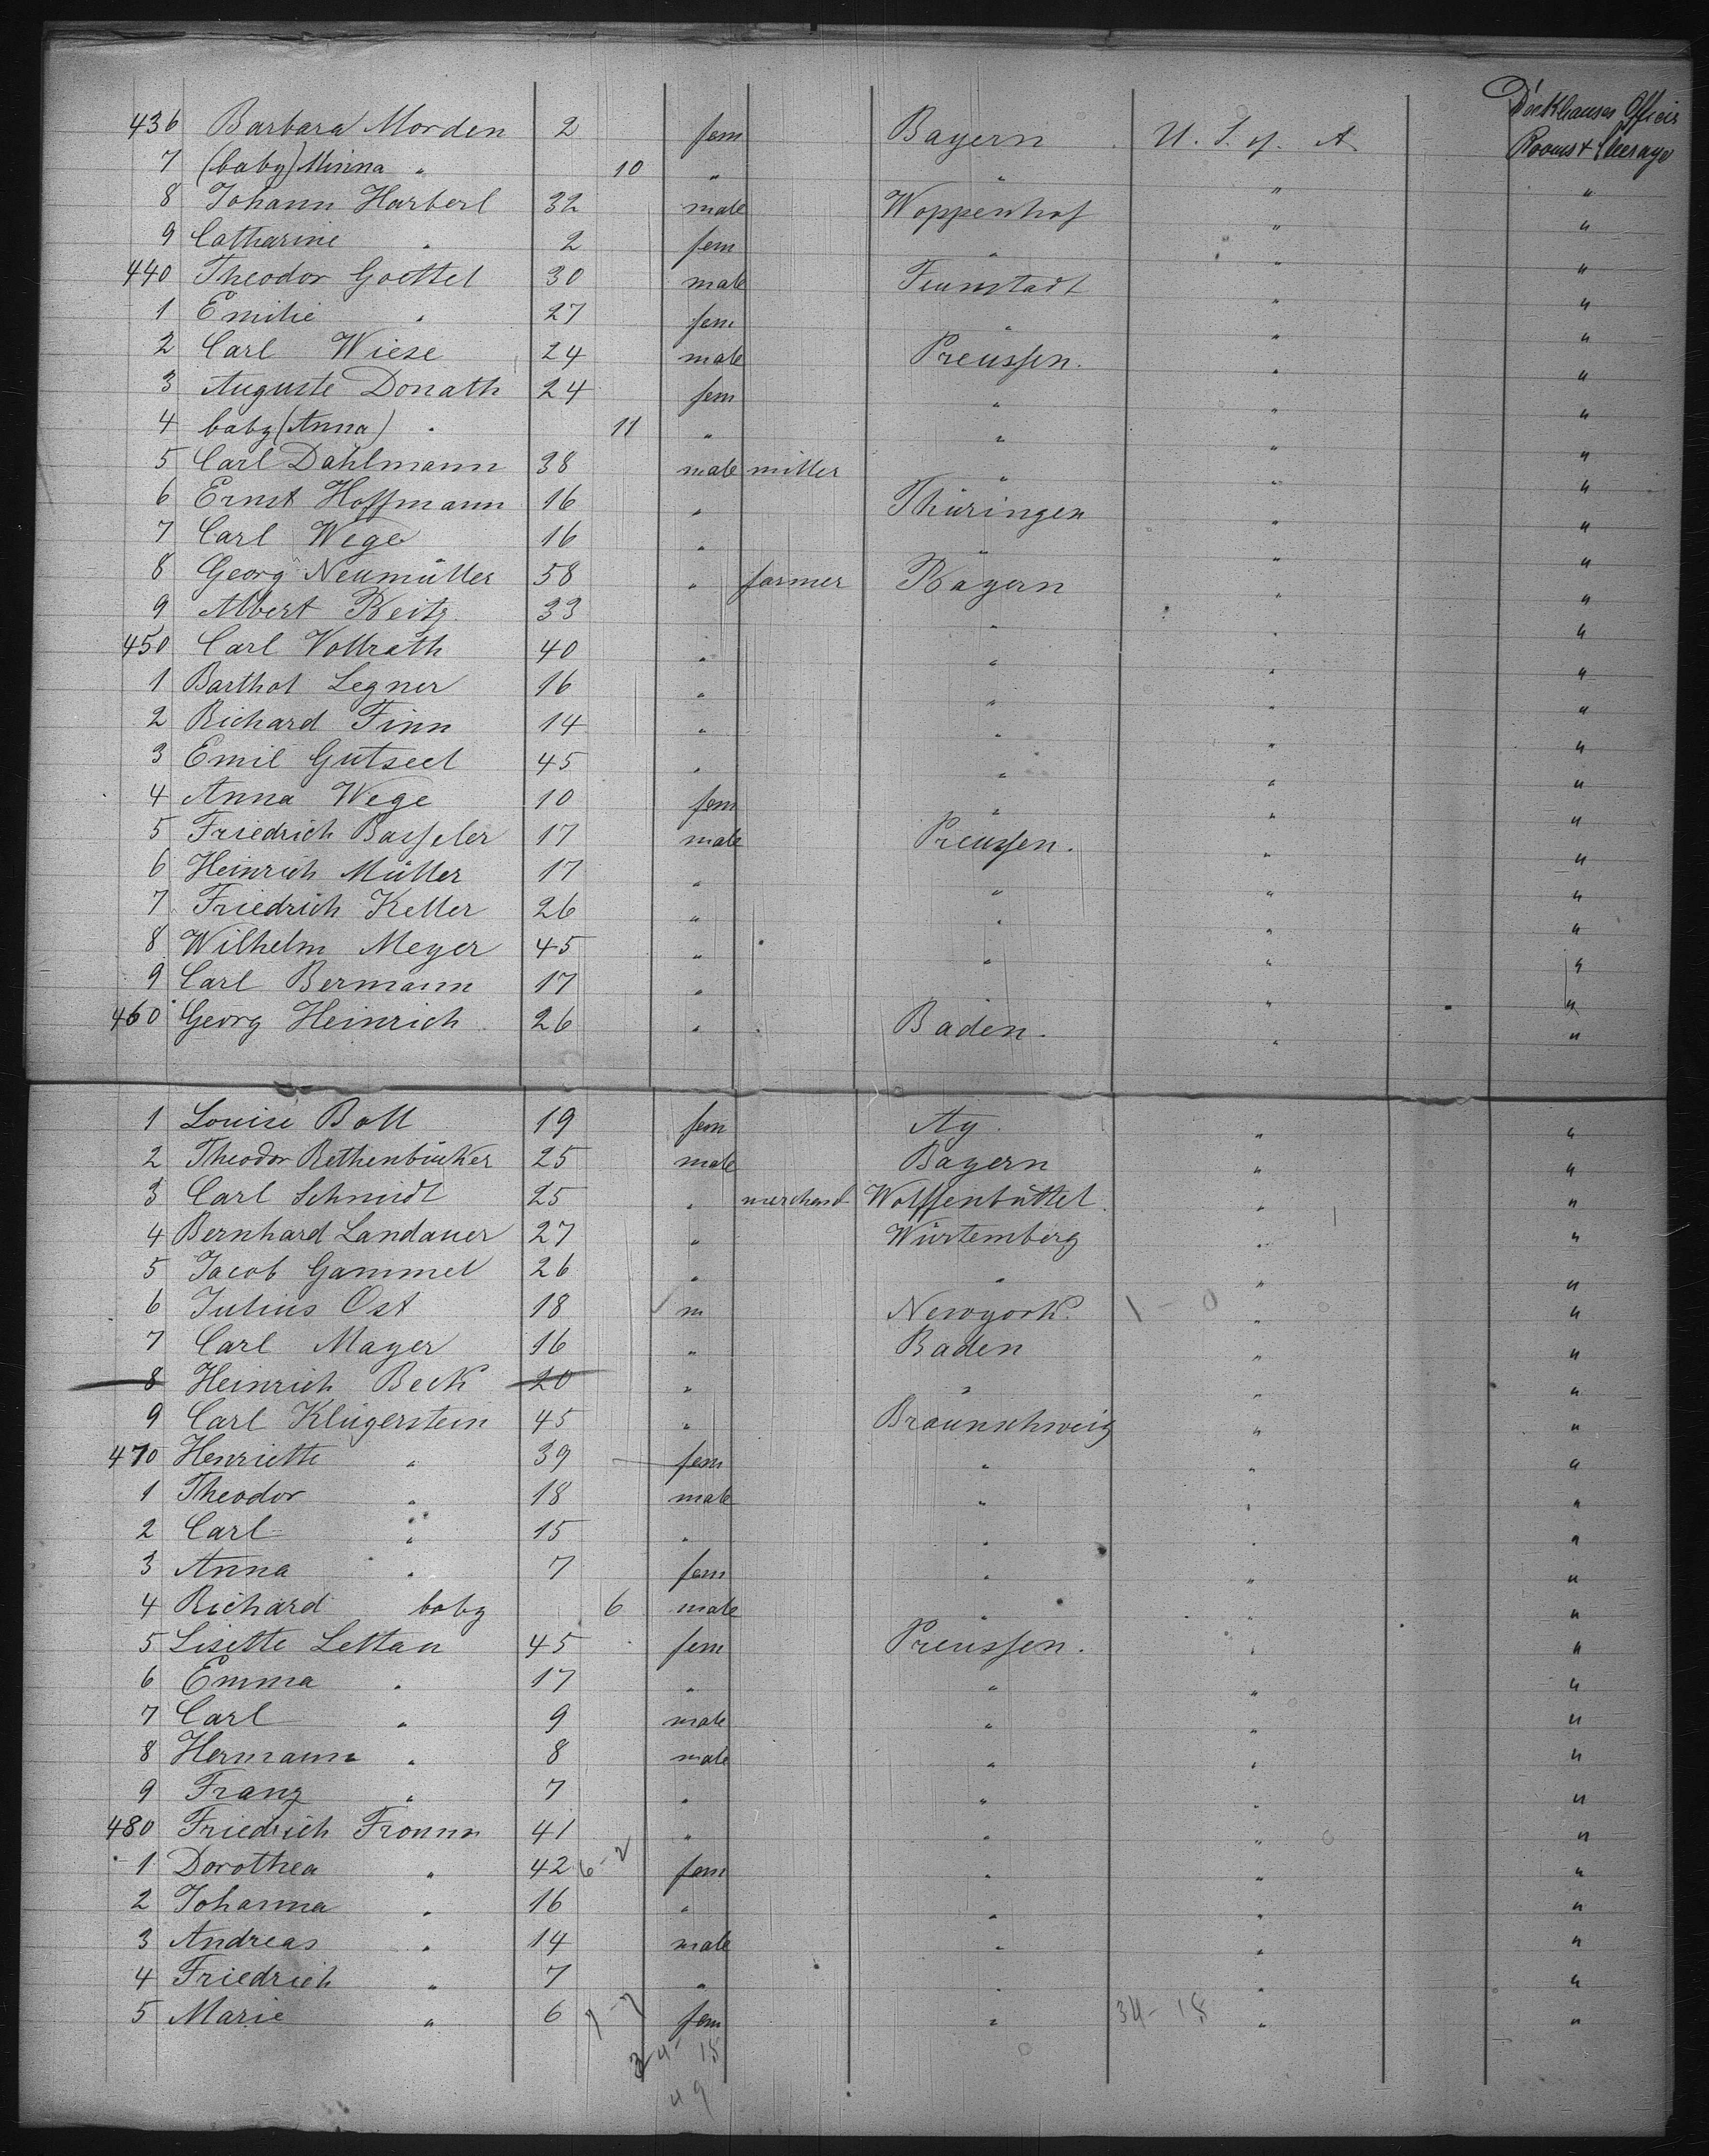 Deckhauses Officirs
Rooms & Steerage
436 Barbara Morden 2 fem Bayern U. S. of. A.
7 (baby) Minna " 10 " "
8 Johann Harberl 32 male Woppenhof " "
9 Catharine " 2 fem " " "
440 Theodor Goettel 30 male " "
1 Emilie " 27 fem " " "
2 Carl Wiese 24 male Preussen. " "
3 Auguste Donath 24 fem " " "
4 baby (Anna) " 11 " " " "
5 Carl Dahlmann 38 male miller " " "
6 Ernst Hoffmann 16 " Thüringen " "
7 Carl Wege 16 " " " "
8 Georg Neumüller 58 " farmer Bayern " "
9 Albert Reitz 33 " " "
450 Carl Vollrath 40 " " " "
1 Barthol Legner 16 " " " "
2 Richard Finn 14 " " " "
3 Emil Gutseel 45 " " " "
4 Anna Wege 10 fem " " "
5 Friedrich Basseler 17 male Preussen. " "
6 Heinrich Müller 17 " " " "
7 Friedrich Keller 26 " " " "
8 Wilhelm Meyer 45 " " " "
9 Carl Bermann 17 " " " "
460 Georg Heinrich 26 " Baden. " "
1 Louise Boll 19 fem Ay. " "
2 Theodor Rethenbücker 25 male Bayern " "
3 Carl Schmidt 25 " merchand Wolffenbüttel " "
4 Bernhard Landauer 27 " Würtemberg " "
5 Jacob Gammel 26 " " " "
6 Julius Ost 18 m Newyork. 1 - 0 " "
7 Carl Mayer 16 " Baden " "
8 Heinrich Beck 20 " " " "
9 Carl Klügerstein 45 " Braunschweig " "
470 Henriette " 39 fem " " "
1 Theodor " 18 male " " "
2 Carl " 15 " " " "
3 Anna " 7 fem " " "
4 Richard baby 6 male " " "
5 Lisette Lettau 45 fem Preussen. " "
6 Emma " 17 " " " "
7 Carl " 9 male " " "
8 Hermann " 8 male " " "
9 Franz " 7 " " " "
480 Friedrich Fromm 41 " " " "
1 Dorothea " 42 6-2 fem " " "
2 Johanna " 16 " " " "
3 Andreas " 14 male " " "
4 Friedrich " 7 " " " "
5 Marie " 6 7-7 fem " 34-15 " "
34-15
49